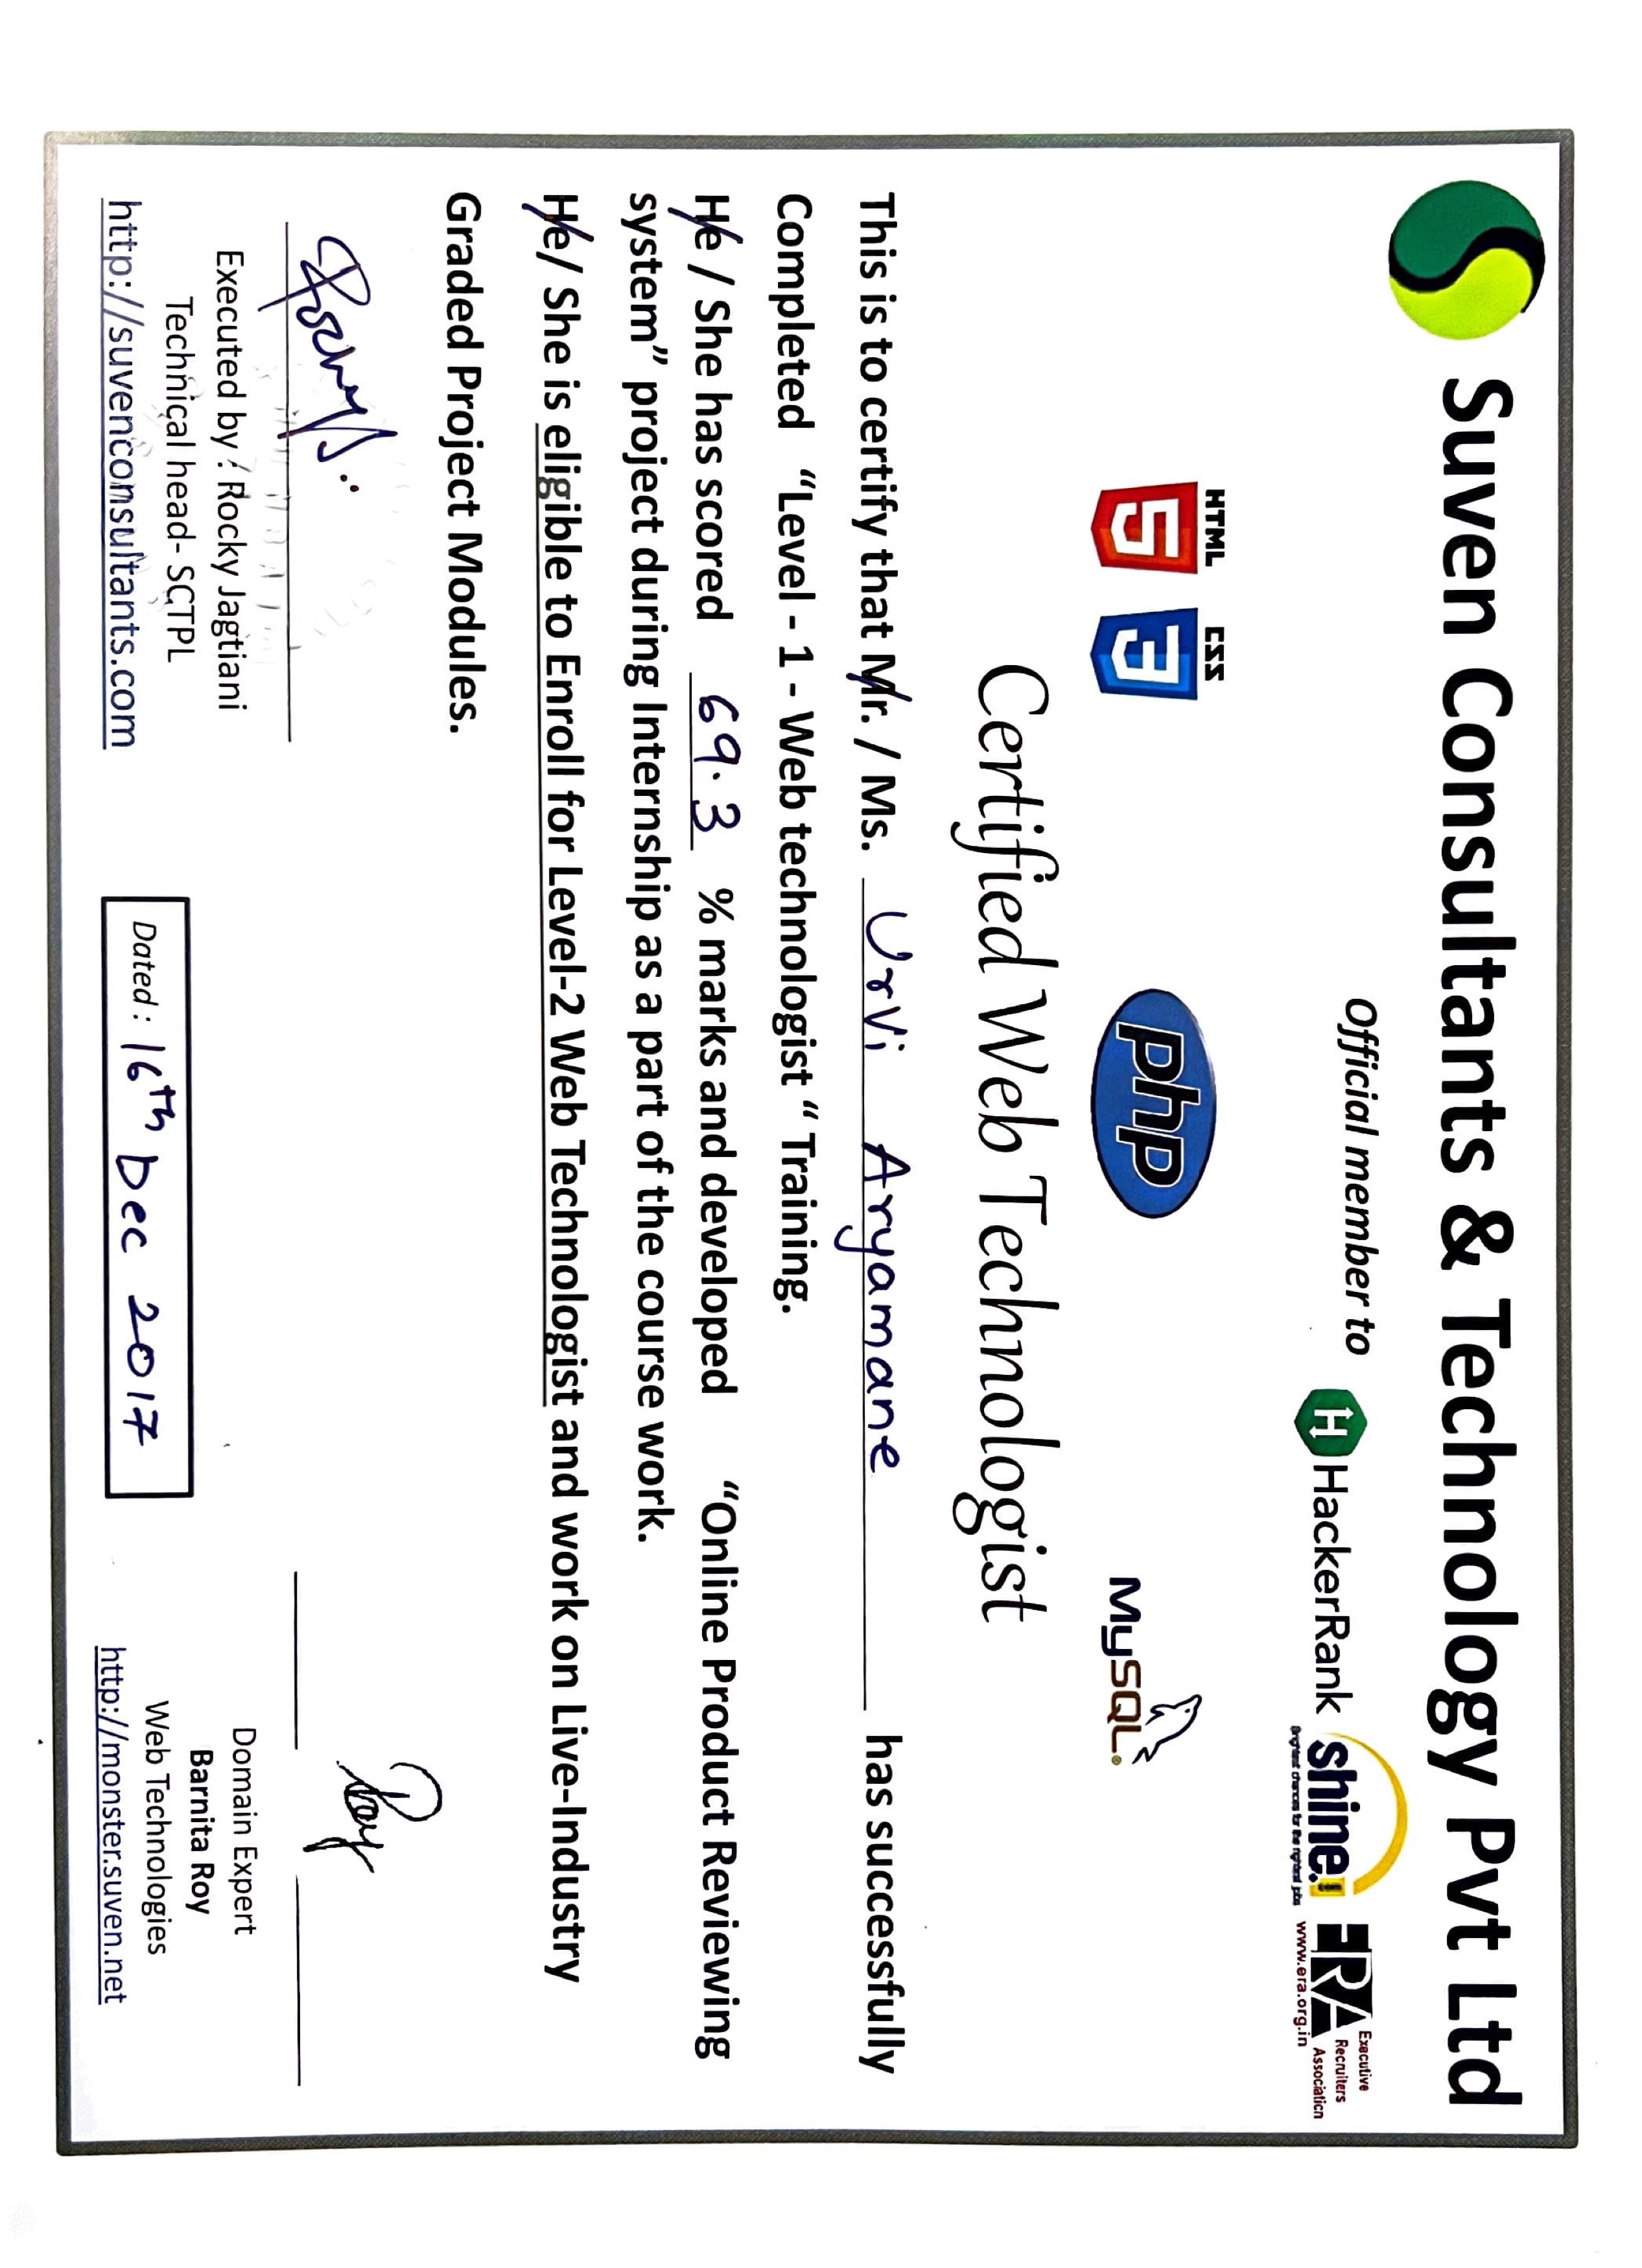 Suven Consultants & Technology Pvt Ltd
Official member to
HackerRank
shine.
Brightest chances for the rightest jobs
ERA Executive Recruiters Association
www.era.org.in
HTML 5
CSS 3
php
MySQL
Certified Web Technologist
This is to certify that Mr. / Ms. Urvi Aryamane has successfully
Completed “Level - 1 - Web technologist “ Training.
He / She has scored 69.3 % marks and developed “Online Product Reviewing
system” project during Internship as a part of the course work.
He/ She is eligible to Enroll for Level-2 Web Technologist and work on Live-Industry
Graded Project Modules.
Rocky J..
Roy
Executed by : Rocky Jagtiani
Technical head- SCTPL
http://suvenconsultants.com
Dated : 16th Dec 2017
Domain Expert
Barnita Roy
Web Technologies
http://monster.suven.net